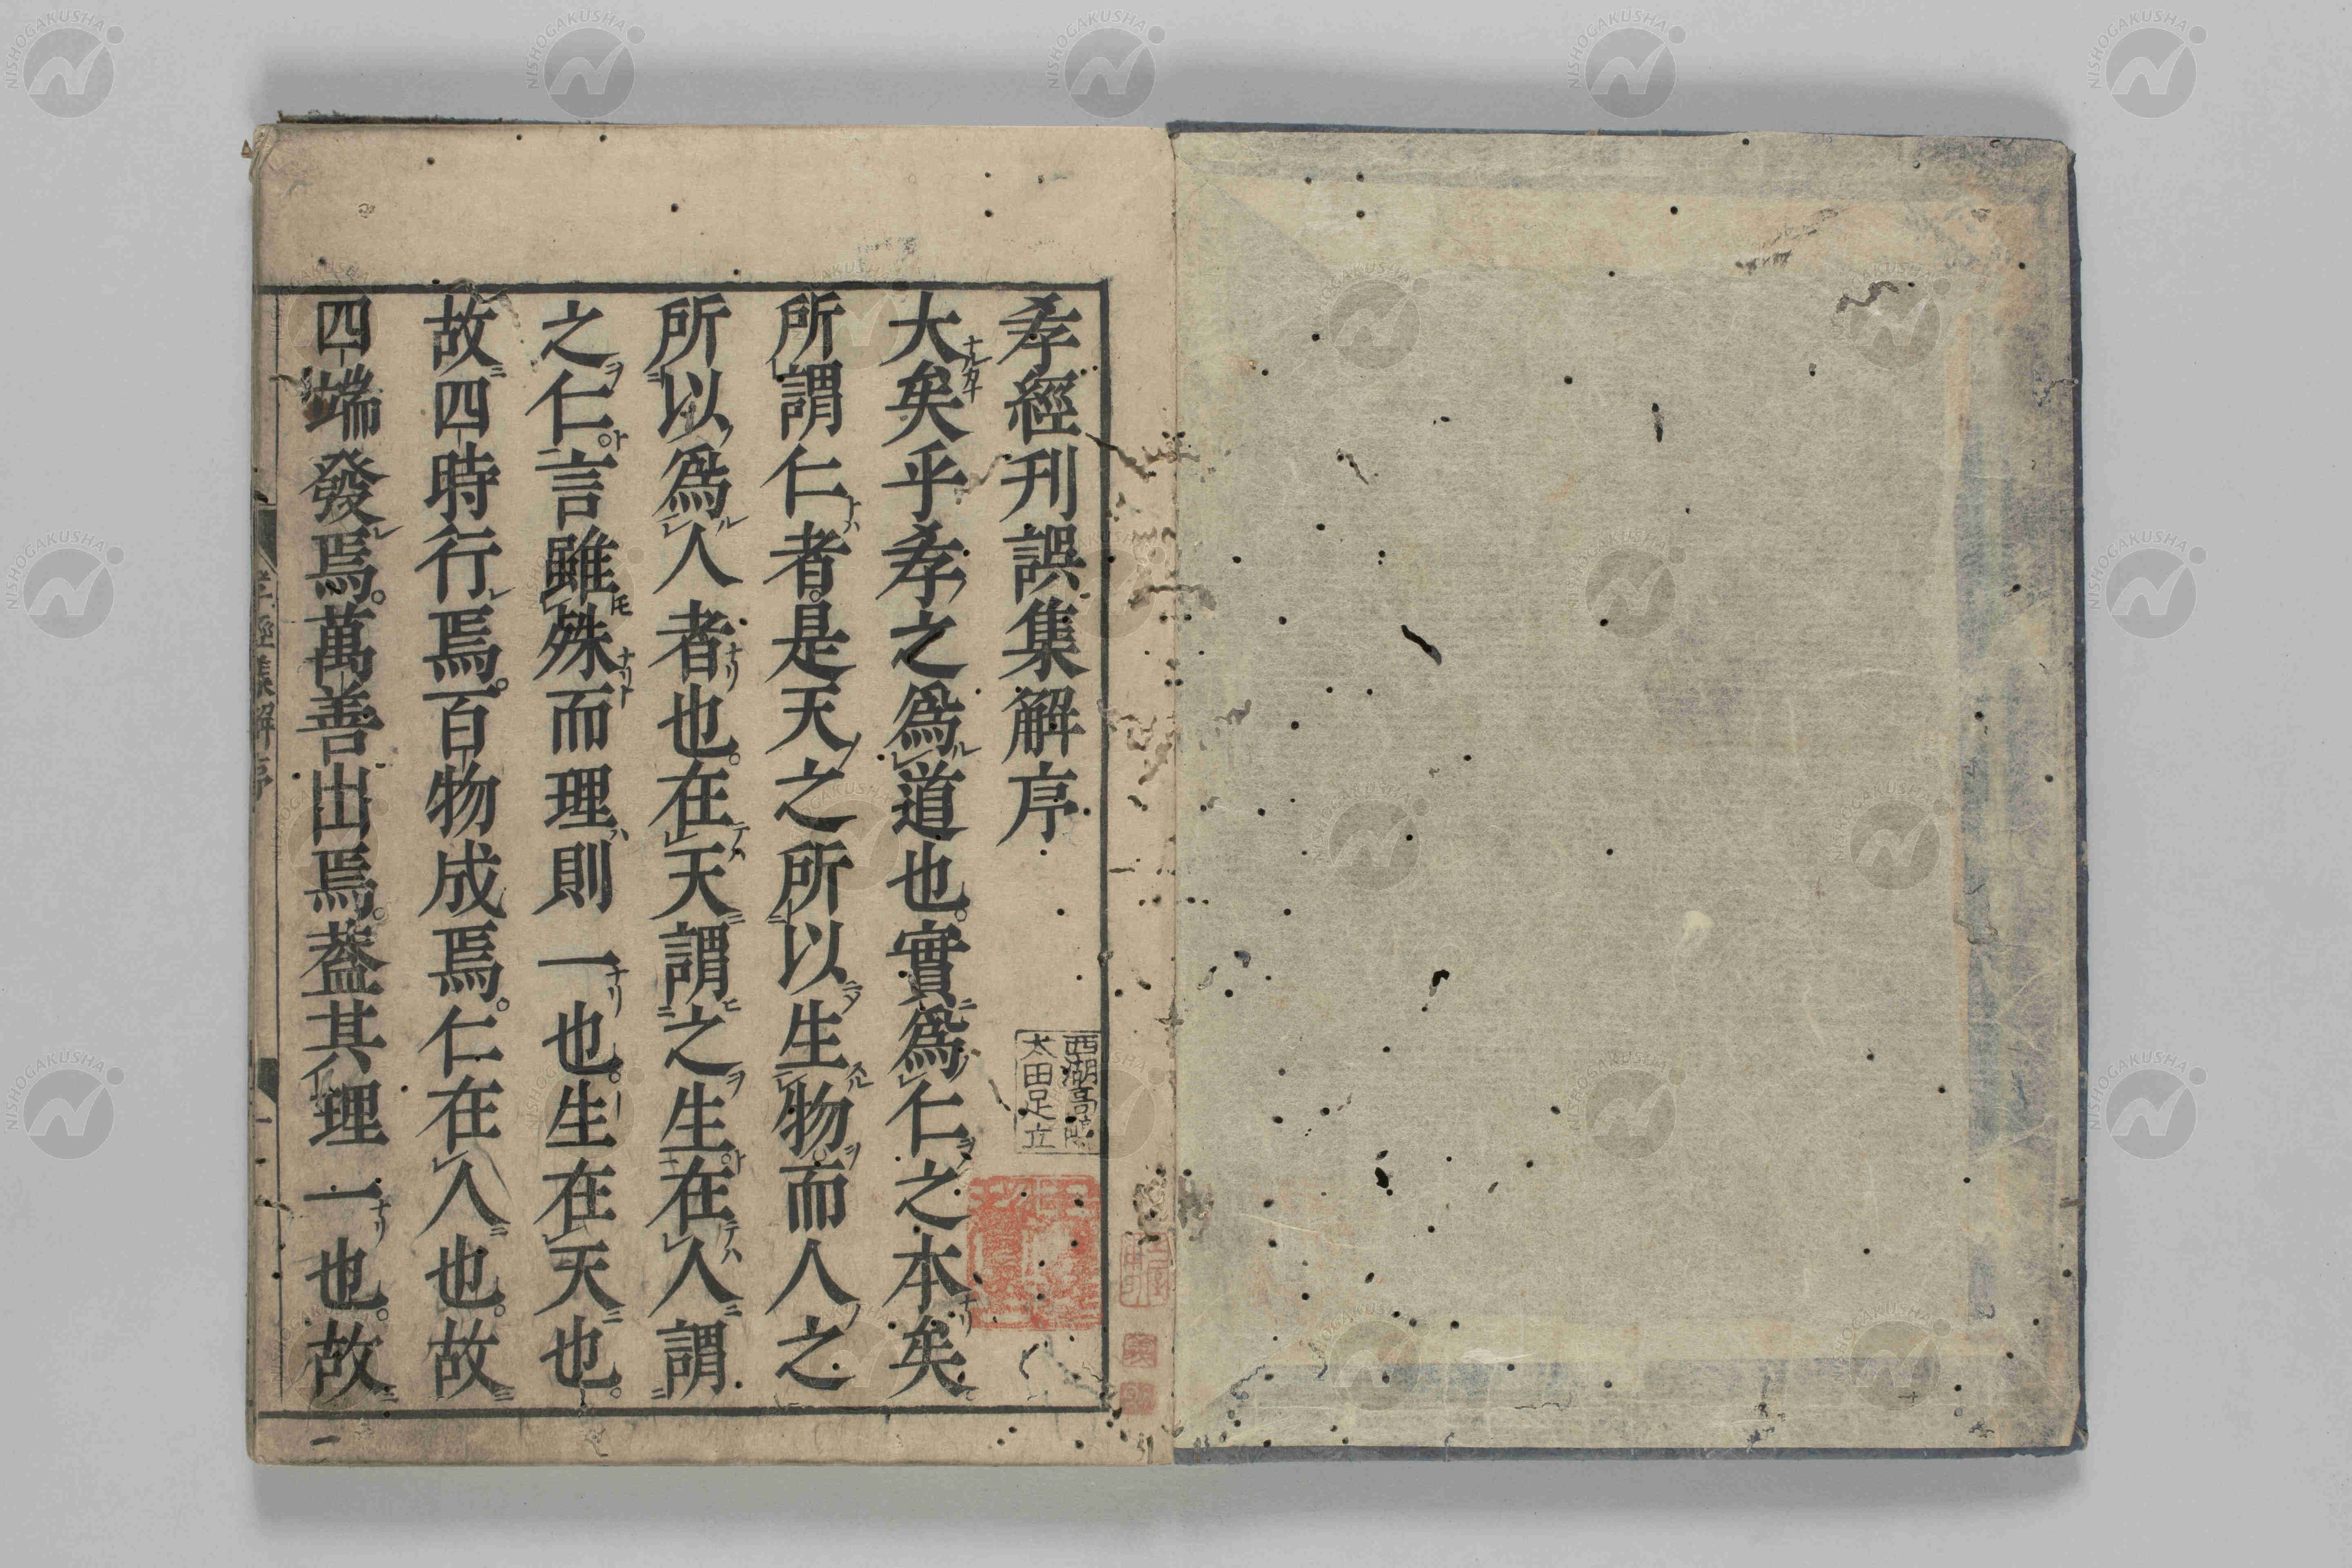 孝經刊誤集解序
大矣乎孝之爲道也。實爲仁之本矣
所謂仁者。是天之所以生物。而人之
所以爲人者也。在天謂之生。在人謂
之仁。言雖殊而理則一也。生在天也。
故四時行焉。百物成焉。仁在人也。故
四端發焉。萬善出焉。蓋其理一也。故
太田足立
一
NISHOGAKUSHA